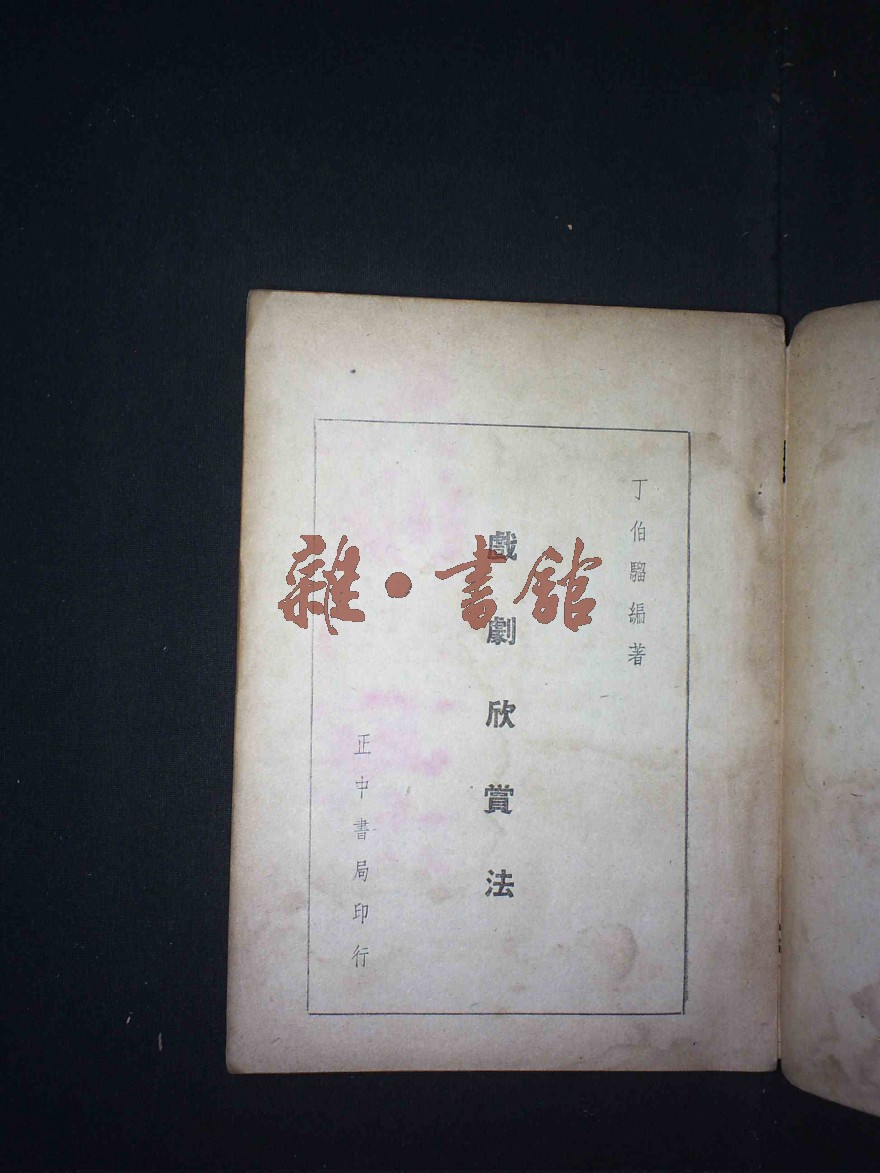 丁伯騮編著
戲劇欣賞法
正中書局印行
雜·書館